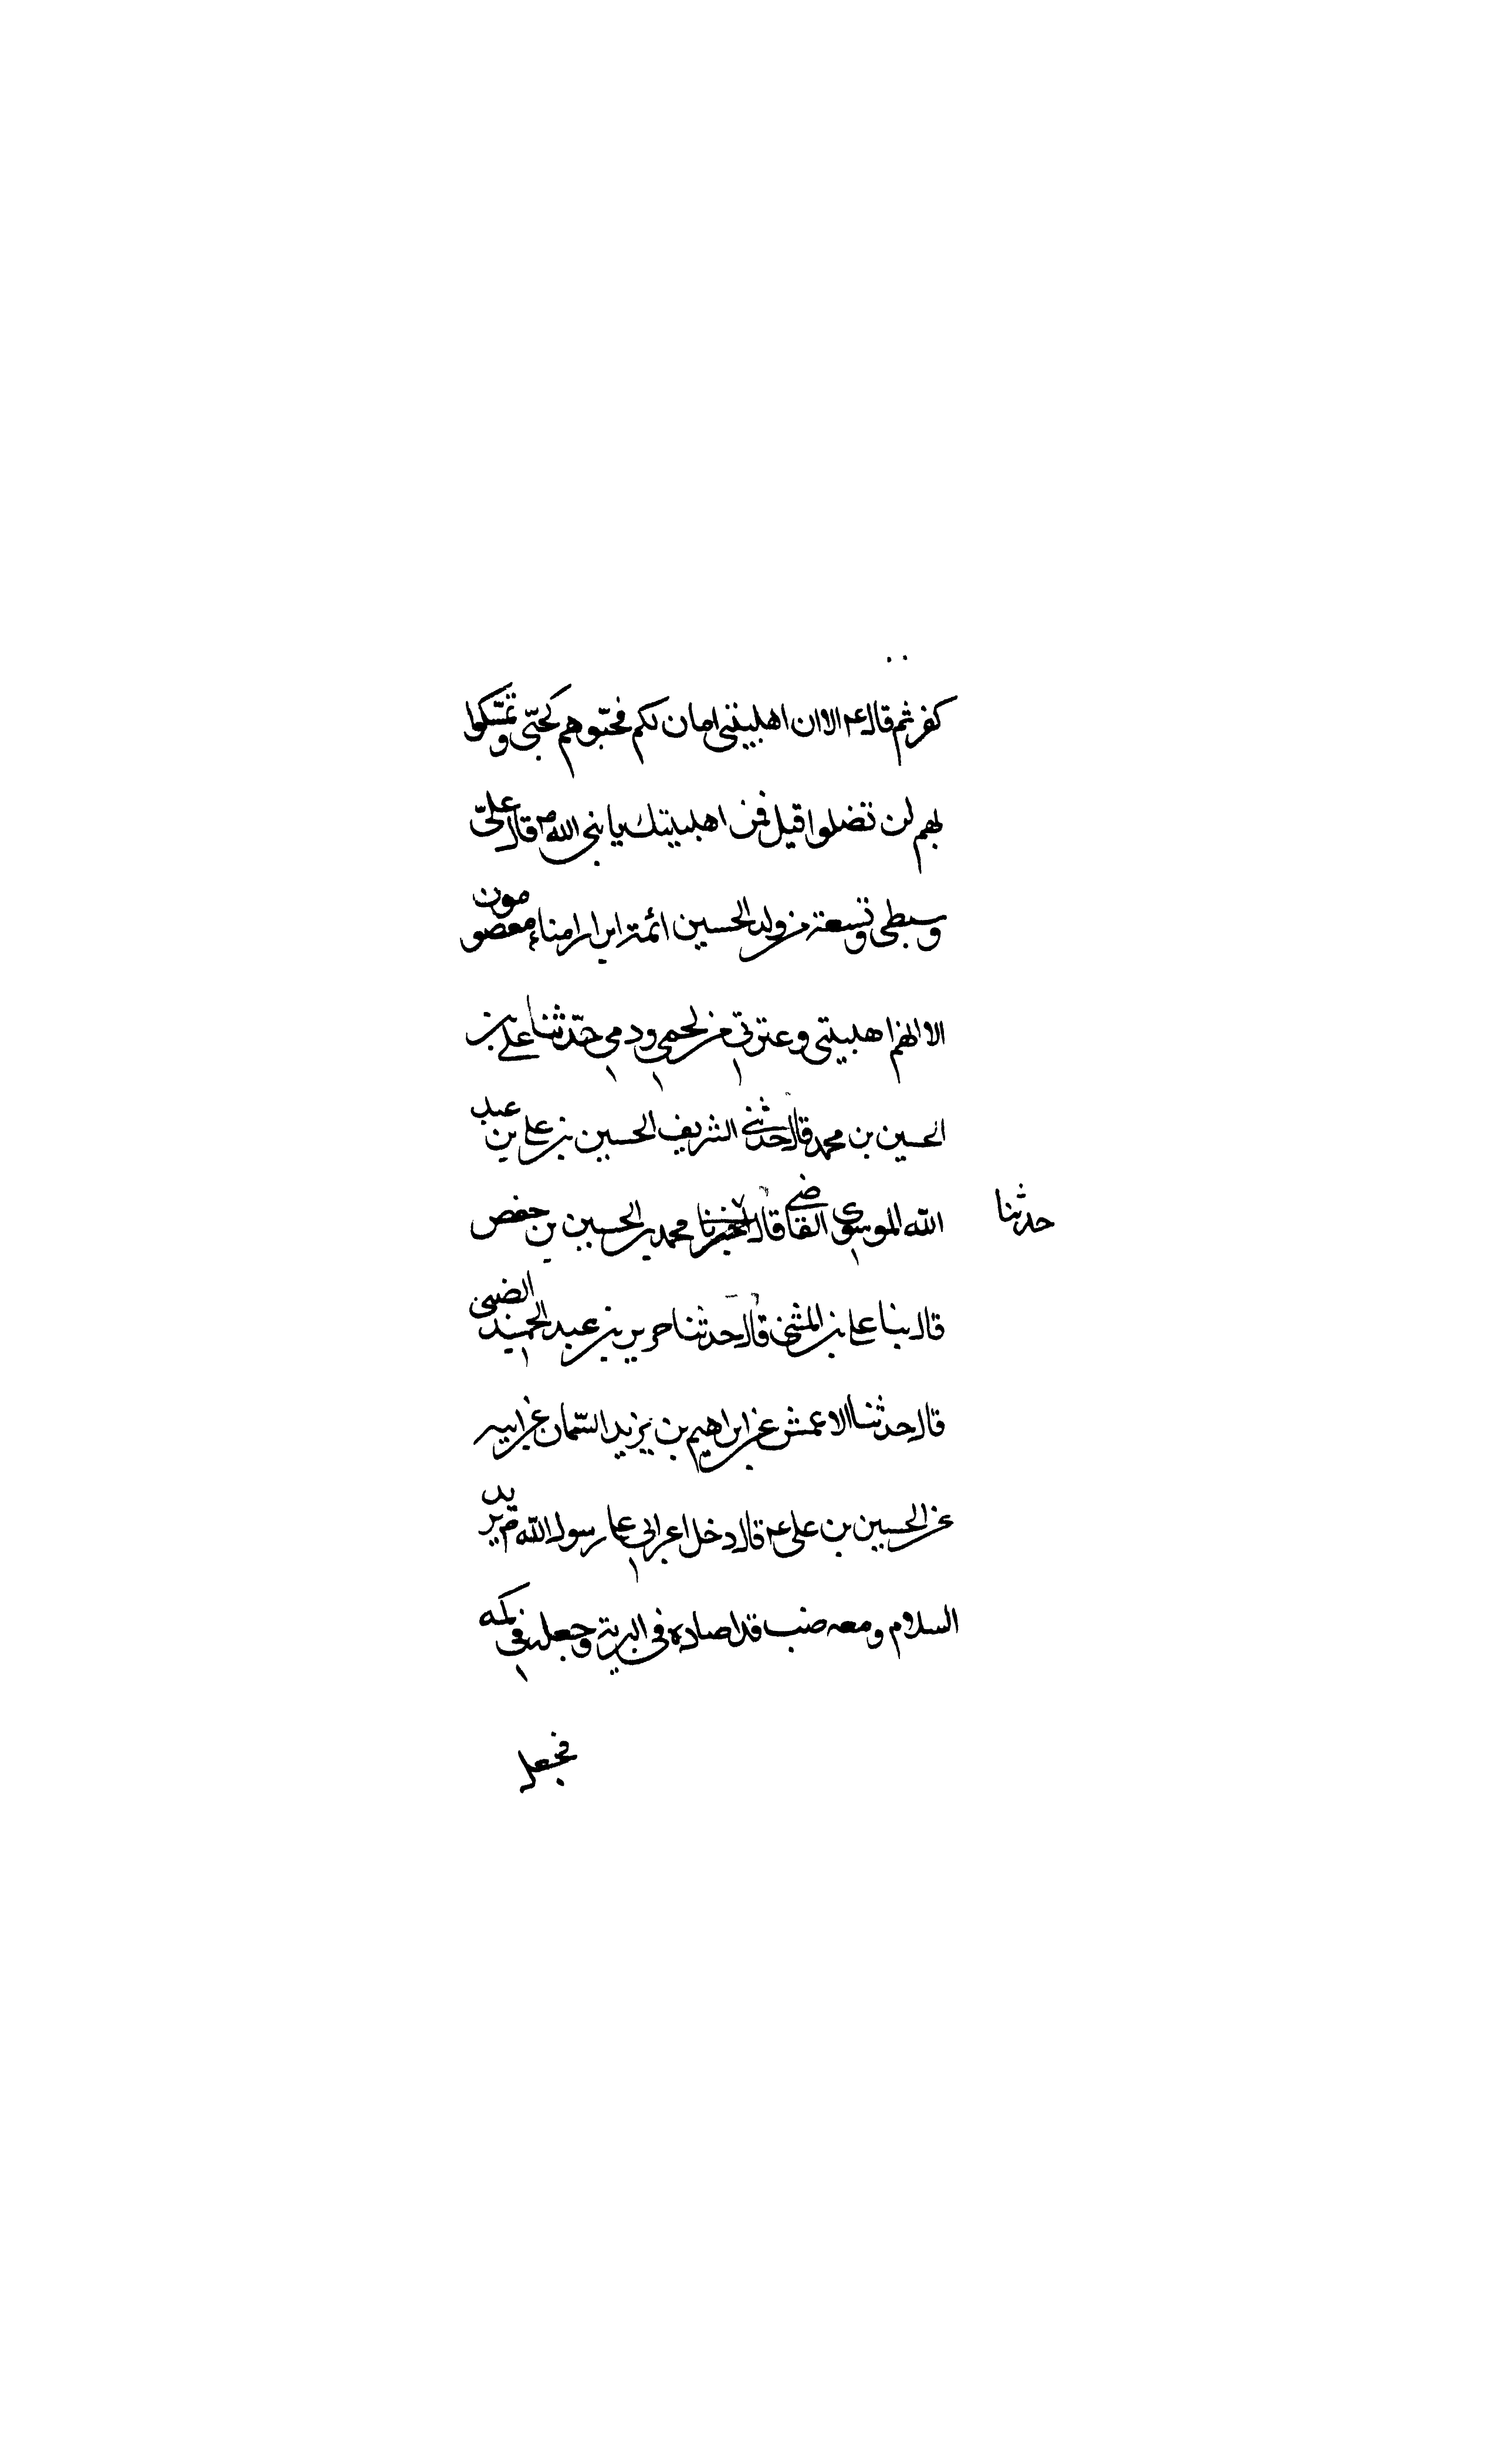 كفر ثم قال عم الا وان اهلبيتى امان لكم فحبّوهم كحبّى وتمسّكوا
بهم لن تضلوا قيل فمن اهلبيتك يا نبى الله ص قال علىّ
وسبطى وتسعة من ولد الحسين ائمة ابرار امناء معصومون
الا انهم اهلبيتى وعترتى من لحمى ودمى حدّثنا علىّ بن
الحسين بن محمد قال حدثنى الشريف الحسين بن على بن عبد
الله الموسوى القاضى قال محمد بن الحسين بن حفص
حدثنا
قال بنا على بن المثنى قال حدثنا حرير بن عبد الحميد الضبى
قال حدثنا الاعمش عن ابراهيم بن يزيد السّمان عن ابيه
عن الحسين بن على عم قال دخل اعرابى على رسول الله ص يريد
السلام ومعه ضب قد اصاده فى البرية وجعله فى كمه
فجعل